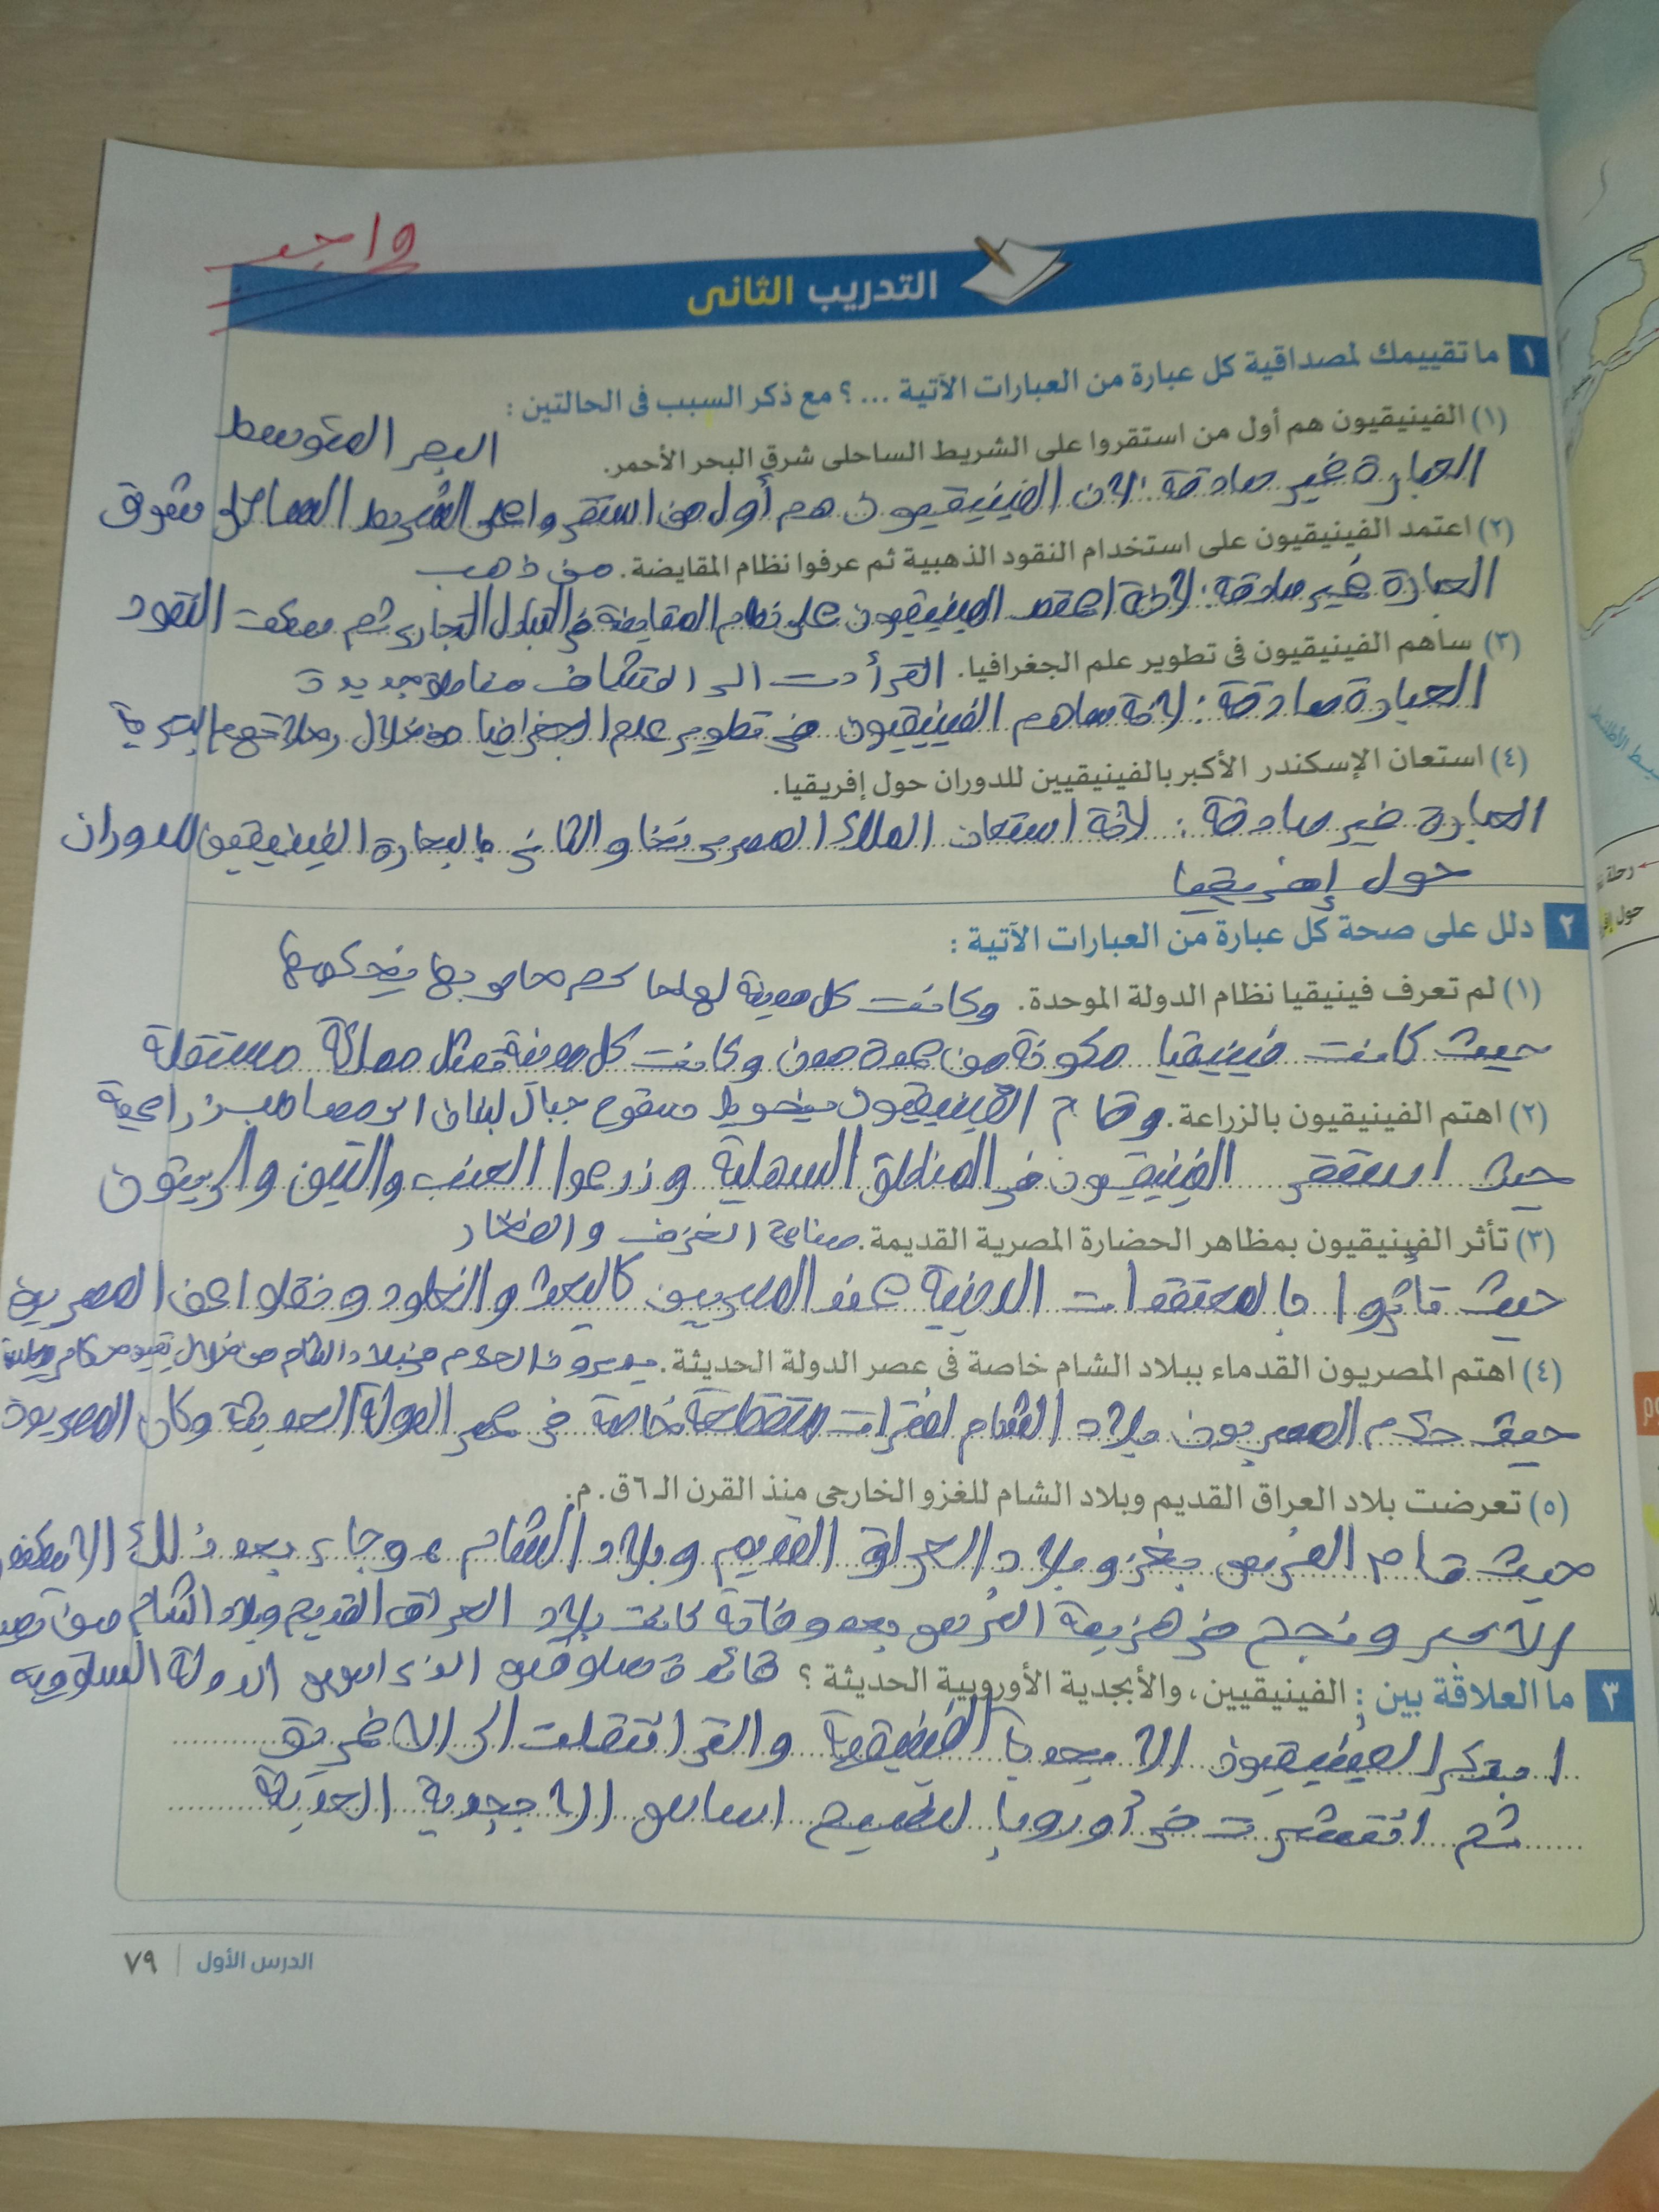 واجب
التدريب الثانى
١ ما تقييمك لمصداقية كل عبارة من العبارات الآتية ... ؟ مع ذكر السبب فى الحالتين :
(١) الفينيقيون هم أول من استقروا على الشريط الساحلى شرق البحر الأحمر.
البحر المتوسط
العبارة غير صادقة : لان الفينيقيون هم أول من استقروا على الشريط الساحلى شرق
(٢) اعتمد الفينيقيون على استخدام النقود الذهبية ثم عرفوا نظام المقايضة.
من ذهب
العبارة غير صادقة : لانه اعتمد الفينيقيون على نظام المقايضة فى التبادل التجارى ثم سكت النقود
(٣) ساهم الفينيقيون فى تطوير علم الجغرافيا.
التى أدت الى اكتشاف مناطق جديدة
العبارة صادقة : لانه ساهم الفينيقيون فى تطوير علم الجغرافيا من خلال رحلاتهم البحرية
(٤) استعان الإسكندر الأكبر بالفينيقيين للدوران حول إفريقيا.
العبارة غير صادقة : لانه استعان الملك المصرى نخاو الثانى بالبحارة الفينيقيين للدوران
حول إفريقيا
٢ دلل على صحة كل عبارة من العبارات الآتية :
(١) لم تعرف فينيقيا نظام الدولة الموحدة.
وكانت كل مدينة لها حاكم خاص بها يحكمها
حيث كانت فينيقيا مكونة من عدة مدن وكانت كل مدينة تمثل مملكة مستقلة
(٢) اهتم الفينيقيون بالزراعة.
وقام الفينيقيون بتحويل سفوح جبال لبنان الى مصاطب زراعية
حيث استقر الفينيقيون فى المناطق السهلية وزرعوا العنب والتين والزيتون
(٣) تأثر الفينيقيون بمظاهر الحضارة المصرية القديمة.
صناعة الخزف والفخار
حيث تأثروا بالمعتقدات الدينية عند المصريين كالبعث والخلود ونقلوا عن المصريين
(٤) اهتم المصريون القدماء ببلاد الشام خاصة فى عصر الدولة الحديثة.
يديرون الحكم فى بلاد الشام من خلال تعيين حكام
حيث حكم المصريون بلاد الشام لفترات متقطعة خاصة فى عصر الدولة الحديثة وكان المصريون
(٥) تعرضت بلاد العراق القديم وبلاد الشام للغزو الخارجى منذ القرن الـ ٦ق. م.
حيث قام الفرس بغزو بلاد العراق القديم وبلاد الشام ، وجاء بعد ذلك الاسكندر
الاكبر ونجح فى هزيمة الفرس بعد وفاته كانت بلاد العراق القديم وبلاد الشام من
٣ ما العلاقة بين : الفينيقيين، والأبجدية الأوروبية الحديثة ؟
قائده سلوقس الذى اسس الدولة السلوقية
ابتكر الفينيقيون الابجدية الفينيقية والتى انتقلت الى الاغريق
ثم انتشرت فى أوروبا لتصبح اساس الابجدية الحديثة
الدرس الأول | ٧٩
رحلة
حول